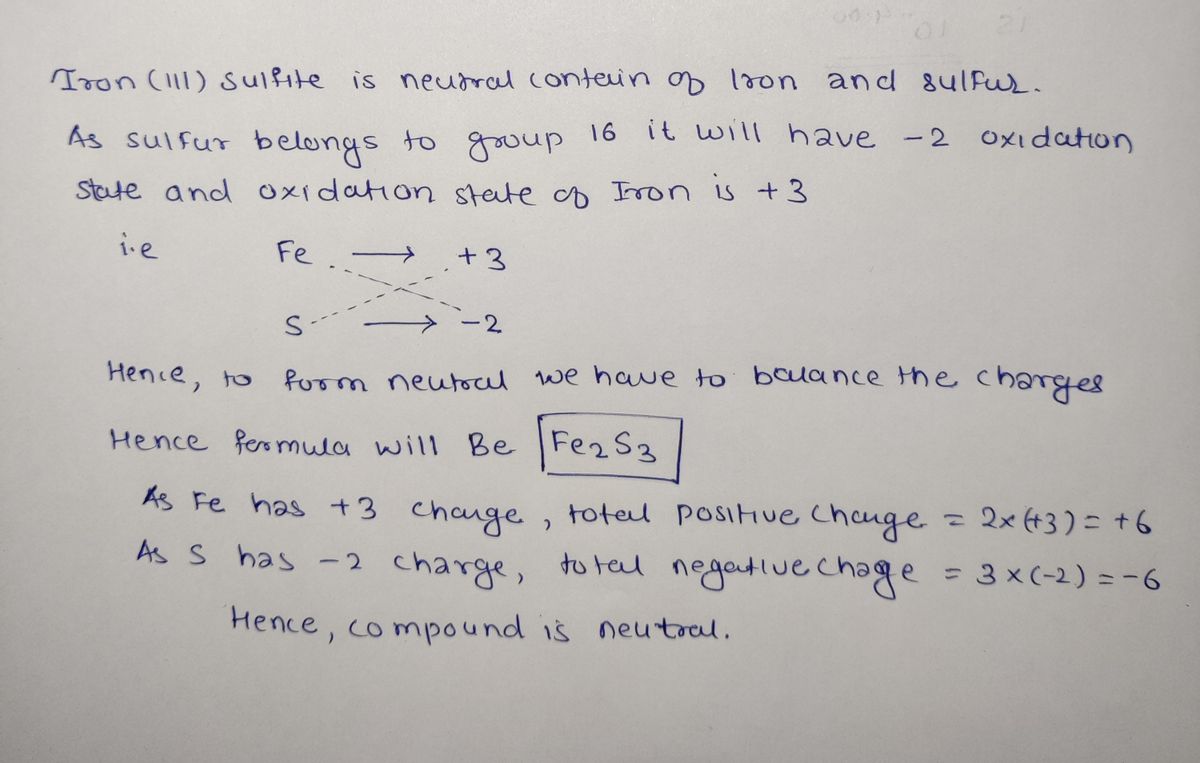 Iron (III) sulfite is neutral contein of Iron and sulfur.
As sulfur belongs to group 16 it will have -2 oxidation
state and oxidation state of Iron is +3
i.e Fe → +3
S → -2
Hence, to form neutral we have to balance the charges
Hence formula will Be Fe₂S₃
As Fe has +3 charge, total positive charge = 2x(+3) = +6
As S has -2 charge, total negative chage = 3x(-2) = -6
Hence, compound is neutral.